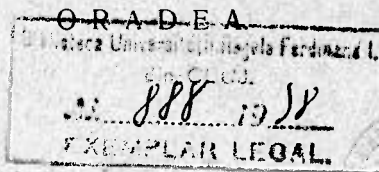 ORADEA
Biblioteca Universității Regele Ferdinand I.
din CLUJ.
No. 888 1938
EXEMPLAR LEGAL.